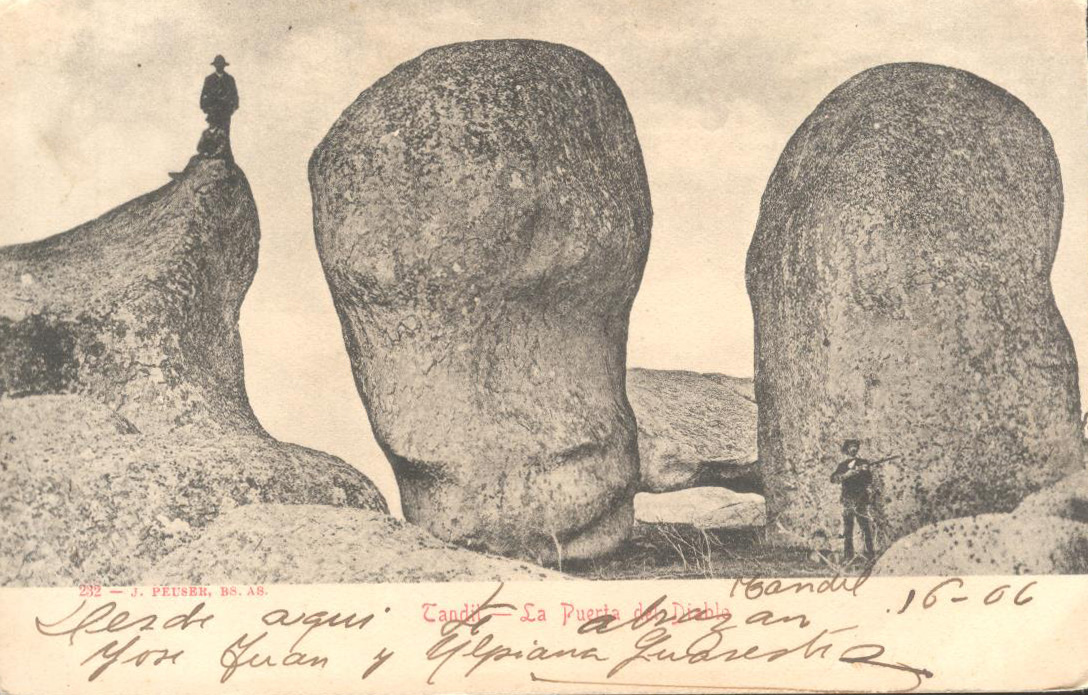 232 — J. PEUSER, BS. AS.
Tandil — La Puerta del Diablo
Tandil 16-06
Desde aqui te abrazan
Jose Juan y Ulpiana